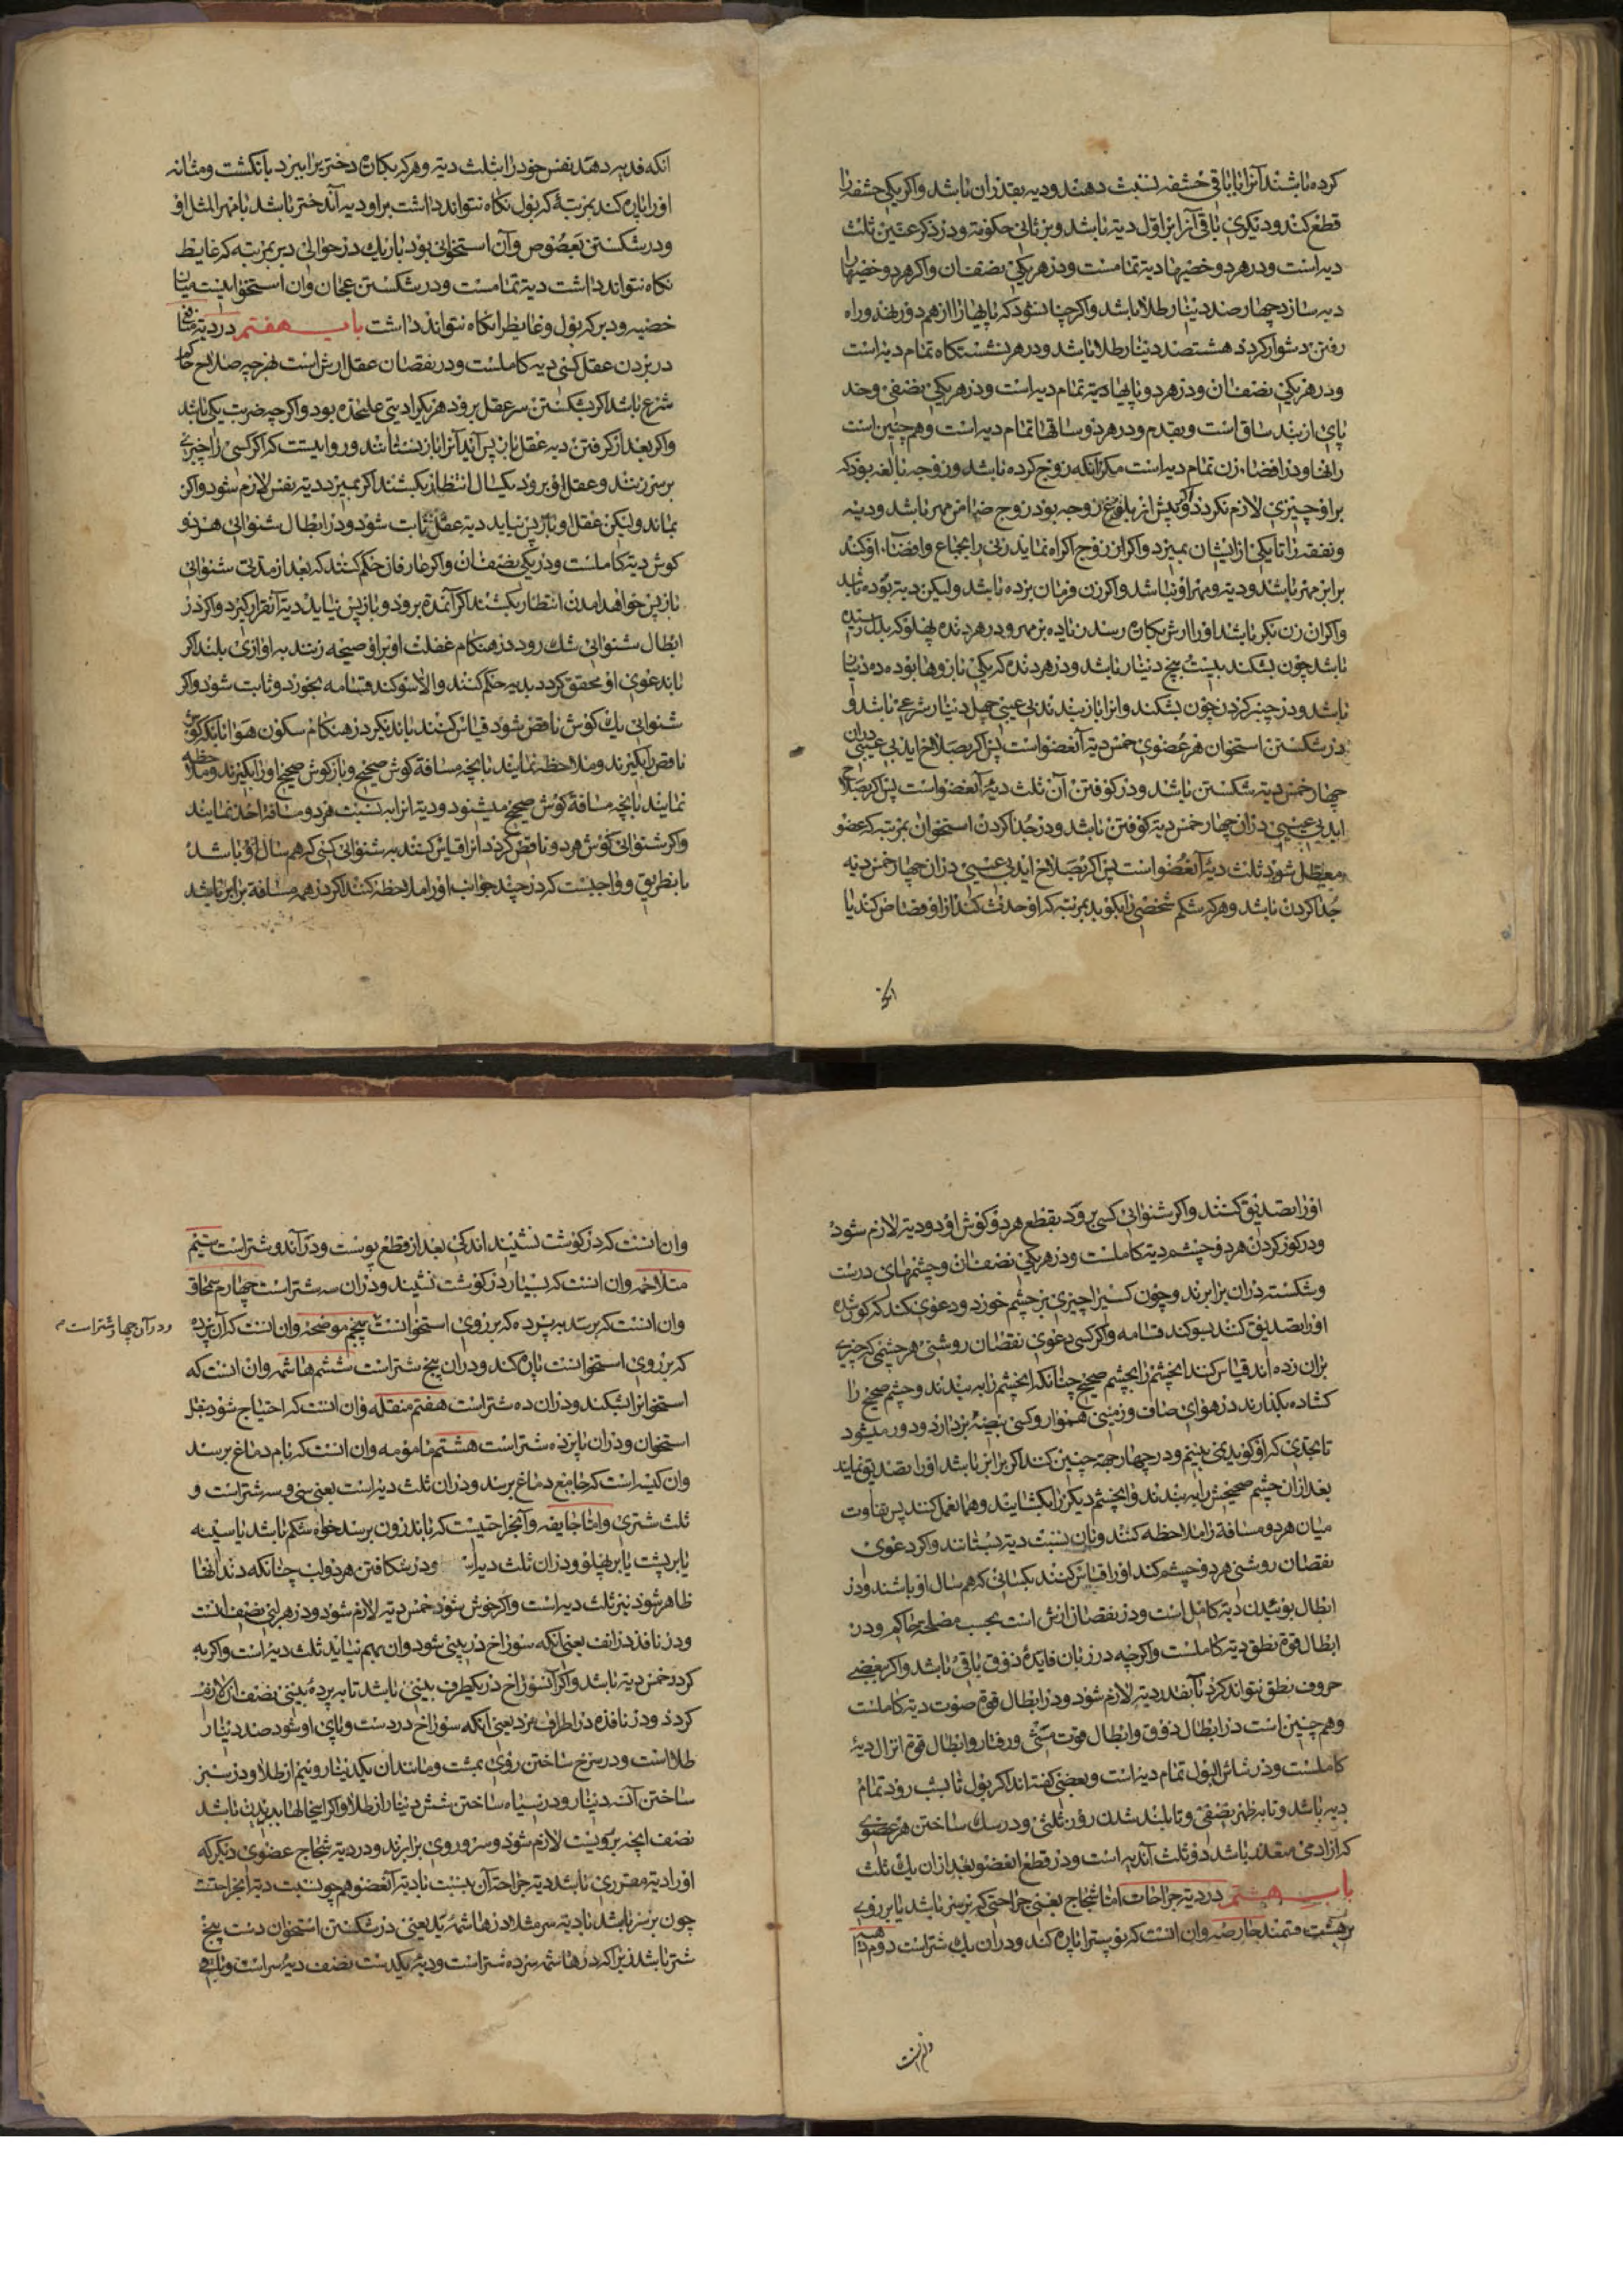 کرده باشند آنرا با باقی حشفه نسبت دهند و دیه بقدر ان باشد و اکر یکی حشفه را
قطع کند و دیکری باقی آنرا بر اول دیه باشد و بر ثانی حکومة و در ذکر عنین ثلث
دیه است و در هر دو خصیها دیه تمامست و در هر یکی نصف ان و اکر هر دو خصیها را
دبه سازد چهار صد دینار طلا باشد و اکر چنان شود که پایها را از هم دور نهد و راه
رفتن دشوار کردد هشتصد دینار طلا باشد و در هر نشستکاه تمام دیه است
و در هر یکی نصف ان و در هر دو پایها دیه تمام دیه است و در هر یکی نصفی و حد
پای از بند ساق است و بقدم و در هر دو ساقها تمام دیه است و هم چنین است
رانها و در افضاء زن تمام دیه است مکر آنکه زوج کرده باشد و زوجه بالغه بود که
بر او چیزی لازم نکردد و اکر پیش از بلوغ زوجه بود زوج ضامن مهر باشد و دیه
و نفقه را تا یکی از ایشان بمیرد و اکر از زوج اکراه نماید زنی را بجماع و افضاء او کند
برابر مهر باشد و دیه و مهر او نباشد و اکر زن فرمان برده باشد ولیکن دیه بوده باشد
و اکر ان زن بکر باشد او را ارش بکاره رسد زیاده بر مهر و در هر دنده پهلو که بدل رسیده
باشد چون بشکند بیست پنج دینار باشد و در هر دنده که یکی بازوها بوده ده دینار
باشد و در چنبر کردن چون بشکند و انرا باز بندند بی عیبی چهل دینار شرعی باشد و
در شکستن استخوان هر عضوی خمس دیه آنعضو است پس اکر بصلاح اید بی عیبی در ان
چهار خمس دیه شکستن باشد و در کوفتن آن ثلث دیه آنعضو است پس اکر بصلاح
اید بی عیبی در ان چهار خمس دیه کوفتن باشد و در جدا کردن استخوان بمرتبه که عضو
معطل شود ثلث دیه آنعضو است پس اکر بصلاح اید بی عیبی در ان چهار خمس دیه
جدا کردن باشد و هر که شکم شخصی را بکوبد بمرتبه که او حدث کند از او قصاص کند یا
انکه فدیه دهد نفس خود را بثلث دیه و هر که بکاره دختر یرا ببرد بانکشت و مثانه
او را پاره کند بمرتبه که بول نکاه نتواند داشت بر او دیه آندختر باشد با مهر المثل او
و در شکستن بعصوص و آن استخوانی بود باریك در حوالی دبر بمرتبه که غایط
نکاه نتواند داشت دیه تمامست و در شکستن عجان و ان استخوانیست میان
خصیه و دبر که بول و غایط را نکاه نتواند داشت باب هفتم در دیه منافع
در بردن عقل کسی دیه کاملست و در نقصان عقل ارش است بهر چه صلاح حاکم
شرع باشد اکر بشکستن سر عقل برود هر یکرا دیتی علیحده بود و اکر چه ضربت یکی باشد
و اکر بعد از کرفتن دیه عقل باز پس آید آنرا باز نستانند و روایتست که اکر کسی را چیزی
بر سر زنند و عقل او برود یکسال انتظار بکشند اکر بمیرد دیه نفس لازم شود و اکر
بماند ولیکن عقل او باز پس نیاید دیه عقل ثابت شود و در ابطال شنوائی هر دو
کوش دیه کاملست و در یکی نصف ان و اکر عارفان حکم کنند که بعد از مدتی شنوائی
باز پس خواهد امدن انتظار بکشند اکر آنمدة برود و باز پس نیاید دیه آنقرار کیرد و اکر در
ابطال شنوائی شك رود در هنکام غفلت او بر او صیحه زنند به اوازی بلند اکر
باند عوی او محقق کردد بدیه حکم کنند والا سوکند قسامه بخورد و ثابت شود و اکر
شنوائی یك کوش ناقص شود قیاس کنند باندیکر در هنکام سکون هوا تا بانکه کوش
ناقص را بکیرند و ملاحظه نمایند تا بچه مسافة کوش صحیح و باز کوش صحیح او را بکیرند و ملاحظه
نمایند تا بچه مسافة کوش صحیح میشنود و دیه انرا به نسبت هر دو مسافة اخذ نمایند
و اکر شنوائی کوش هر دو ناقص کردد انرا قیاس کنند به شنوائی کسی که هم سال او باشد
بانطریق و واجبست که در چند جوانب او را ملاحظه کنند اکر در همه مسافة برابر باشد
او را تصدیق کنند و اکر شنوائی کسی برود بقطع هر دو کوش او دو دیه لازم شود
و در کور کردن هر دو چشم دیه کاملست و در هر یکی نصف ان و چشمهای درست
و شکسته در ان برابرند و چون کسیرا چیزی بر چشم خورد و دعوی کند که کور شده
او را تصدیق کنند بسوکند قسامه و اکر کسی دعوی نقصان روشنی هر چشمی که چیزی
بران زده اند قیاس کند انچشم را بچشم صحیح چنانکه انچشم را به بندند و چشم صحیح را
کشاده بکذارند در هوای صاف و زمینی هموار و کسی بیضه بردارد و دور میشود
تا بحدی که او کوید نمی بینم و در چهار جهة چنین کند اکر برابر باشد او را تصدیق نمایند
بعد از ان چشم صحیحش را به بندند و انچشم دیکر را بکشایند و همان عمل کنند پس تفاوت
میان هر دو مسافة را ملاحظه کنند و بان نسبت دیه بستانند و اکر دعوی
نقصان روشنی هر دو چشم کند او را قیاس کنند بکسانی که هم سال او باشند و در
ابطال بوئیدن دیه کامل است و در نقصان ارش است بحسب مصلحة حاکم و در
ابطال قوة نطق دیه کاملست و اکر چه در زبان فایده ذوق باقی باشد و اکر ببعضی
حروف نطق نتواند کرد بآنقدر دیه لازم شود و در ابطال قوة صوت دیه کاملست
و هم چنین است در ابطال ذوق و ابطال قوت مشی و رفتار و ابطال قوة انزال دیه
کاملست و در سلس البول تمام دیه است و بعضی کفته اند اکر بول تا بشب رود تمام
دیه باشد و تا به ظهر نصفی و تا بلند شدن روز ثلثی و در سك ساختن هر عضوی
که از ادمی متعدد باشد دو ثلث آندیه است و در قطع انعضو بعد از ان یك ثلث
باب هشتم در دیه جراحات اما شجاج یعنی جراحتی که بر سر باشد یا بر روی
بر هشت قسمند حارصه وان انست که پوسترا پاره کند و در ان یك شتر است دوم دامیه
وان انست که در کوشت نشیند اندکی بعد از قطع پوست و در آندو شتر است سیم
متلاحمه وان انست که بسیار در کوشت نشیند و در ان سه شتر است چهارم سمحاق
وان انست که برسد به پرده که بر روی استخوانست پنجم موضحه وان انست که آن پرده
و در آن چهار شتر است
که بر روی استخوانست پاره کند و در ان پنج شتر است ششم هاشمه وان انست که
استخوانرا بشکند و در ان ده شتر است هفتم منقله وان انست که احتیاج شود بنقل
استخوان و در ان پانزده شتر است هشتم مامومه وان انست که بام دماغ برسد
وان کیسه است که جامع دماغ برسد و در ان ثلث دیه است یعنی سی و سه شتر است و
ثلث شتری و اما جایفه و آنجراحتیست که باندرون برسد خواه شکم باشد یا سینه
یا بر پشت یا بر پهلو و در ان ثلث دیه است و در شکافتن هر دو لب چنانکه دندانها
ظاهر شود نیز ثلث دیه است و اکر خوش شود خمس دیه لازم شود و در هر لبی نصف انست
و در نافذ در انف یعنی آنکه سوراخ در بینی شود وان بهم نیاید ثلث دیه است و اکر به
کردد خمس دیه باشد و اکر آنسوراخ در یکطرف بینی باشد تا به پرده بینی نصف ان لازم
کردد و در نافذه در اطراف مرد یعنی آنکه سوراخ در دست و پای او شود صد دینار
طلا است و در سرخ ساختن روی بمشت و مانند ان یکدینار و نیم از طلا و در سبز
ساختن آن سه دینار و در سیاه ساختن شش دینار از طلا و اکر اینحالها بر بدن باشد
نصف انچه بر رویست لازم شود و سر و روی برابرند و در دیه شجاج عضوی دیکر که
او را دیه مقرری باشد دیه جراحة آن بنسبت با دیه آنعضو هم چو نسبت دیه آنجراحتست
چون بر سر باشد با دیه سر مثلا در هاشمه ید یعنی در شکستن استخوان دست پنج
شتر باشد زیرا که در هاشمه سر ده شتر است و دیه یکدست نصف دیه سر است و باقی